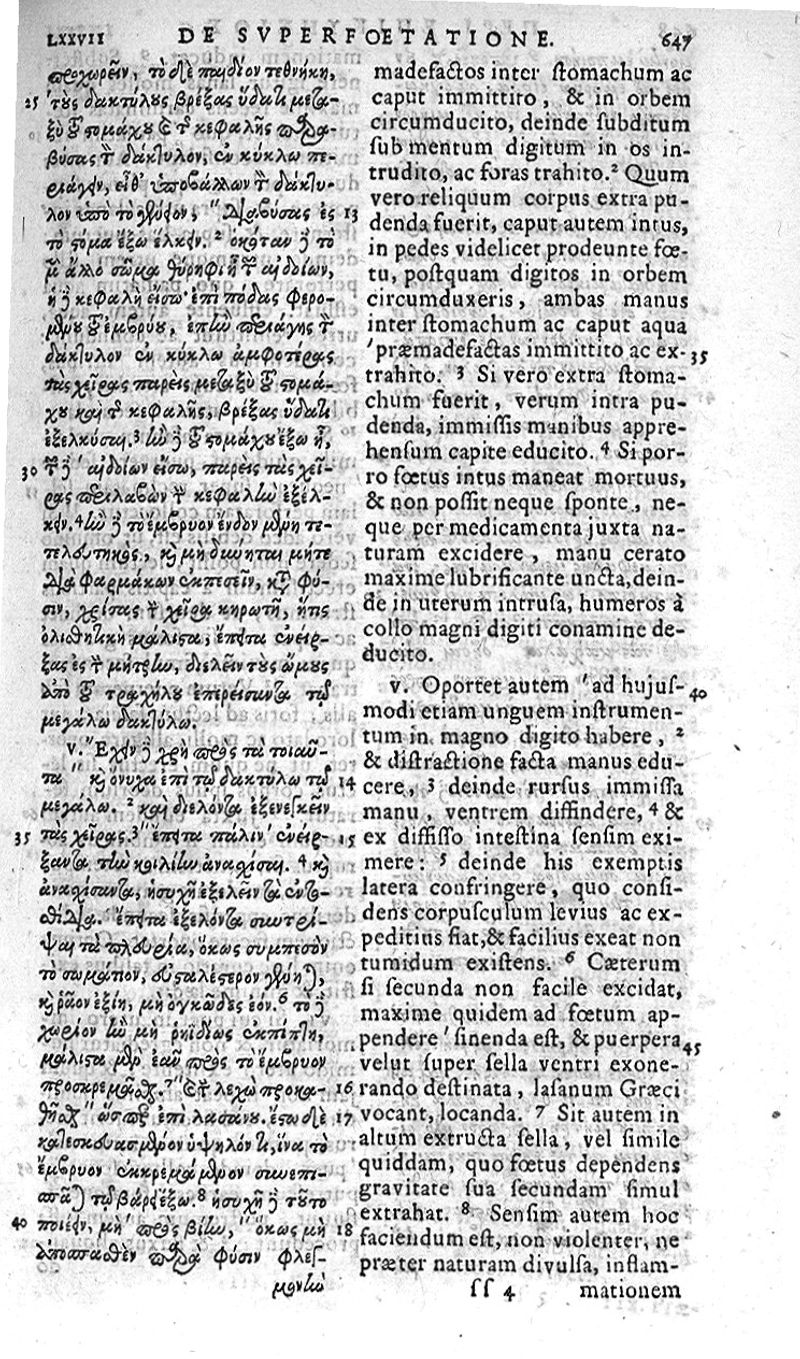 LXXVII DE SVPERFOETATIONE. 647
προχωρεῖν, τὸ δὲ παιδίον τεθνήκῃ,
25 τοὺς δακτύλους βρέξας ὕδατι μετα-
ξὺ τοῦ στομάχου καὶ τῆς κεφαλῆς παρα-
βύσας τὸν δάκτυλον, ἐν κύκλῳ πε-
ριάγειν, εἶθ' ὑποβάλλων τὸν δάκτυ-
λον ὑπὸ τὸ γένειον, " διαβύσας ἐς 13
τὸ στόμα ἔξω ἕλκειν. 2 ὁκόταν δὲ τὸ
μὲν ἄλλο σῶμα θύρηφι ᾖ τῶν αἰδοίων,
ἡ δὲ κεφαλὴ εἴσω· ἐπὶ πόδας φερο-
μένου τοῦ ἐμβρύου, ἐπὴν περιάγῃς τὸν
δάκτυλον ἐν κύκλῳ ἀμφοτέρας
τὰς χεῖρας παρεὶς μεταξὺ τοῦ στομά-
χου καὶ τῆς κεφαλῆς, βρέξας ὕδατι
ἐξελκύσαι. 3 ἢν δὲ τοῦ στομάχου ἔξω ᾖ,
30 τῶν δὲ αἰδοίων εἴσω, παρεὶς τὰς χεῖ-
ρας περιλαβὼν τὴν κεφαλὴν ἐξέλ-
κειν. 4 ἢν δὲ τὸ ἔμβρυον ἔνδον μένῃ τε-
τελευτηκὸς, καὶ μὴ δύνηται μήτε
διὰ φαρμάκων ἐκπεσεῖν, κατὰ φύ-
σιν, χρίσας τὴν χεῖρα κηρωτῇ, ἥτις
ὀλισθητικὴ μάλιστα, ἔπειτα ἐνείρ-
ξας ἐς τὴν μήτρην, διελεῖν τοὺς ὤμους
ἀπὸ τοῦ τραχήλου ἐπερείσαντα τῷ
μεγάλῳ δακτύλῳ.
v. Ἔχειν δὲ χρὴ πρὸς τὰ τοιαῦ-
τα " καὶ ὄνυχα ἐπὶ τῷ δακτύλῳ τῷ 14
μεγάλῳ. 2 καὶ διελόντα ἐξενεγκεῖν
35 τὰς χεῖρας. 3 " ἔπειτα πάλιν ἐνείρ- 15
ξαντα τὴν κοιλίην ἀνασχίσαι. 4 καὶ
ἀνασχίσαντα, ἡσυχῆ ἐξελεῖν τὰ ἐντο-
σθίδια. 5 ἔπειτα ἐξελόντα συντρί-
ψαι τὰ πλευρία, ὅκως συμπεσὸν
τὸ σωμάτιον, εὐσταλέστερον γένηται,
καὶ ῥᾷον ἐξίῃ, μὴ ὀγκῶδες ἐόν. 6 τὸ δὲ
χωρίον ἢν μὴ ῥηϊδίως ἐκπίπτῃ,
μάλιστα μὲν ἐᾷν πρὸς τὸ ἔμβρυον
προσκρεμᾶσθαι. 7 " καὶ τὴν λεχὼ προκα- 16
θῆσθαι " ὥσπερ ἐπὶ λασάνου. ἔστω δὲ 17
κατεσκευασμένον ὑψηλόν τι, ἵνα τὸ
ἔμβρυον ἐκκρεμάμενον συνεπι-
σπᾶται τῷ βάρει ἔξω. 8 ἡσυχῆ δὲ τοῦτο
40 ποιέειν, μὴ πρὸς βίην, " ὅκως μὴ 18
ἀποσπασθὲν παρὰ φύσιν φλεγ-
μονὴν
madefactos inter stomachum ac
caput immittito, & in orbem
circumducito, deinde subditum
sub mentum digitum in os in-
trudito, ac foras trahito. 2 Quum
vero reliquum corpus extra pu-
denda fuerit, caput autem intus,
in pedes videlicet prodeunte fœ-
tu, postquam digitos in orbem
circumduxeris, ambas manus
inter stomachum ac caput aqua
præmadefactas immittito ac ex- 35
trahito. 3 Si vero extra stoma-
chum fuerit, verum intra pu-
denda, immissis manibus appre-
hensum capite educito. 4 Si por-
ro fœtus intus maneat mortuus,
& non possit neque sponte, ne-
que per medicamenta juxta na-
turam excidere, manu cerato
maxime lubrificante uncta, dein-
de in uterum intrusa, humeros à
collo magni digiti conamine de-
ducito.
v. Oportet autem ad hujus- 40
modi etiam unguem instrumen-
tum in magno digito habere, 2
& distractione facta manus edu-
cere, 3 deinde rursus immissa
manu, ventrem diffindere, 4 &
ex diffisso intestina sensim exi-
mere: 5 deinde his exemptis
latera confringere, quo consi-
dens corpusculum levius ac ex-
peditius fiat, & facilius exeat non
tumidum existens. 6 Cæterum
si secunda non facile excidat,
maxime quidem ad fœtum ap-
pendere sinenda est, & puerpera 45
velut super sella ventri exone-
rando destinata, lasanum Græci
vocant, locanda. 7 Sit autem in
altum extructa sella, vel simile
quiddam, quo fœtus dependens
gravitate sua secundam simul
extrahat. 8 Sensim autem hoc
faciendum est, non violenter, ne
præter naturam divulsa, inflam-
ss 4 mationem